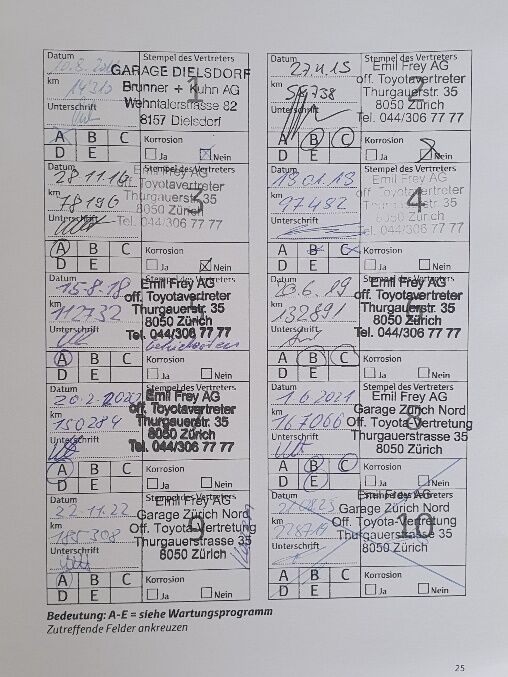 Datum Stempel des Vertreters
GARAGE DIELSDORF
km 14310 Brunner + Kuhn AG
Wehntalerstrasse 82
Unterschrift 8157 Dielsdorf
1
A B C Korrosion
D E Ja Nein
Datum 27.11.15 Stempel des Vertreters
Emil Frey AG
off. Toyotavertreter
km Thurgauerstr. 35
8050 Zürich
Unterschrift Tel. 044/306 77 77
2
A B C Korrosion
D E Ja Nein
Datum 28.11.16 Stempel des Vertreters
Emil Frey AG
off. Toyotavertreter
km 78196 Thurgauerstr. 35
8050 Zürich
Unterschrift Tel. 044/306 77 77
3
A B C Korrosion
D E Ja Nein
Datum Stempel des Vertreters
Emil Frey AG
off. Toyotavertreter
km 97482 Thurgauerstr. 35
8050 Zürich
Unterschrift Tel. 044/306 77 77
4
A B C Korrosion
D E Ja Nein
Datum 15.8.18 Stempel des Vertreters
Emil Frey AG
off. Toyotavertreter
km 112732 Thurgauerstr. 35
8050 Zürich
Unterschrift Tel. 044/306 77 77
A B C Korrosion
D E Ja Nein
Datum Stempel des Vertreters
Emil Frey AG
off. Toyotavertreter
km 132891 Thurgauerstr. 35
8050 Zürich
Unterschrift Tel. 044/306 77 77
A B C Korrosion
D E Ja Nein
Datum Stempel des Vertreters
Emil Frey AG
off. Toyotavertreter
km 150284 Thurgauerstr. 35
8050 Zürich
Unterschrift Tel. 044/306 77 77
A B C Korrosion
D E Ja Nein
Datum 1.6.2021 Stempel des Vertreters
Emil Frey AG
Garage Zürich Nord
km 167066 Off. Toyota-Vertretung
Thurgauerstrasse 35
Unterschrift 8050 Zürich
8
A B C Korrosion
D E Ja Nein
Datum 22.11.22 Stempel des Vertreters
Emil Frey AG
Garage Zürich Nord
km 185308 Off. Toyota-Vertretung
Thurgauerstrasse 35
Unterschrift 8050 Zürich
9
A B C Korrosion
D E Ja Nein
Datum Stempel des Vertreters
Emil Frey AG
Garage Zürich Nord
km Off. Toyota-Vertretung
Thurgauerstrasse 35
Unterschrift 8050 Zürich
10
A B C Korrosion
D E Ja Nein
Bedeutung: A-E = siehe Wartungsprogramm
Zutreffende Felder ankreuzen
25